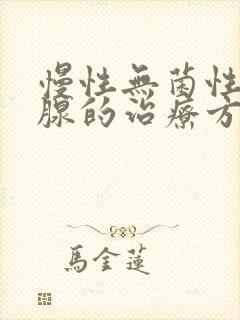 慢性無菌性
腺的治療方
馬金蓮